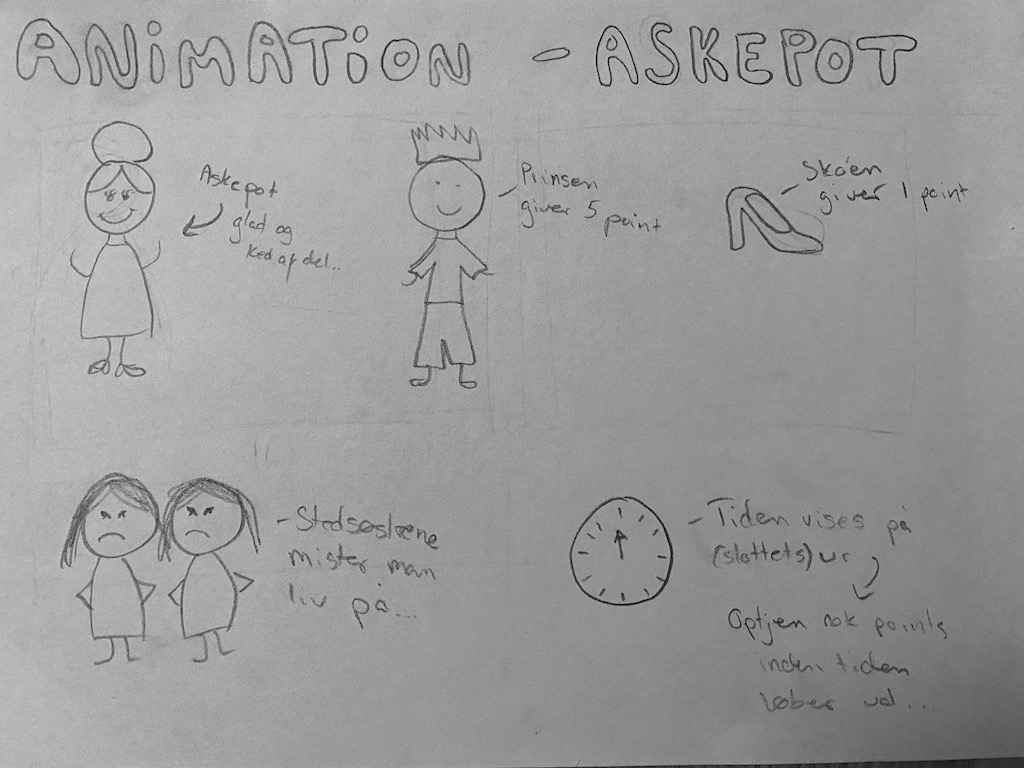 ANiMATiON - ASKEPOT
Askepot
glad og
ked af det..
Prinsen
giver 5 point
Skoen
giver 1 point
- Stedsøstrene
mister man
liv på...
- Tiden vises på
(slottets) ur
Optjen nok points
inden tiden
løber ud...